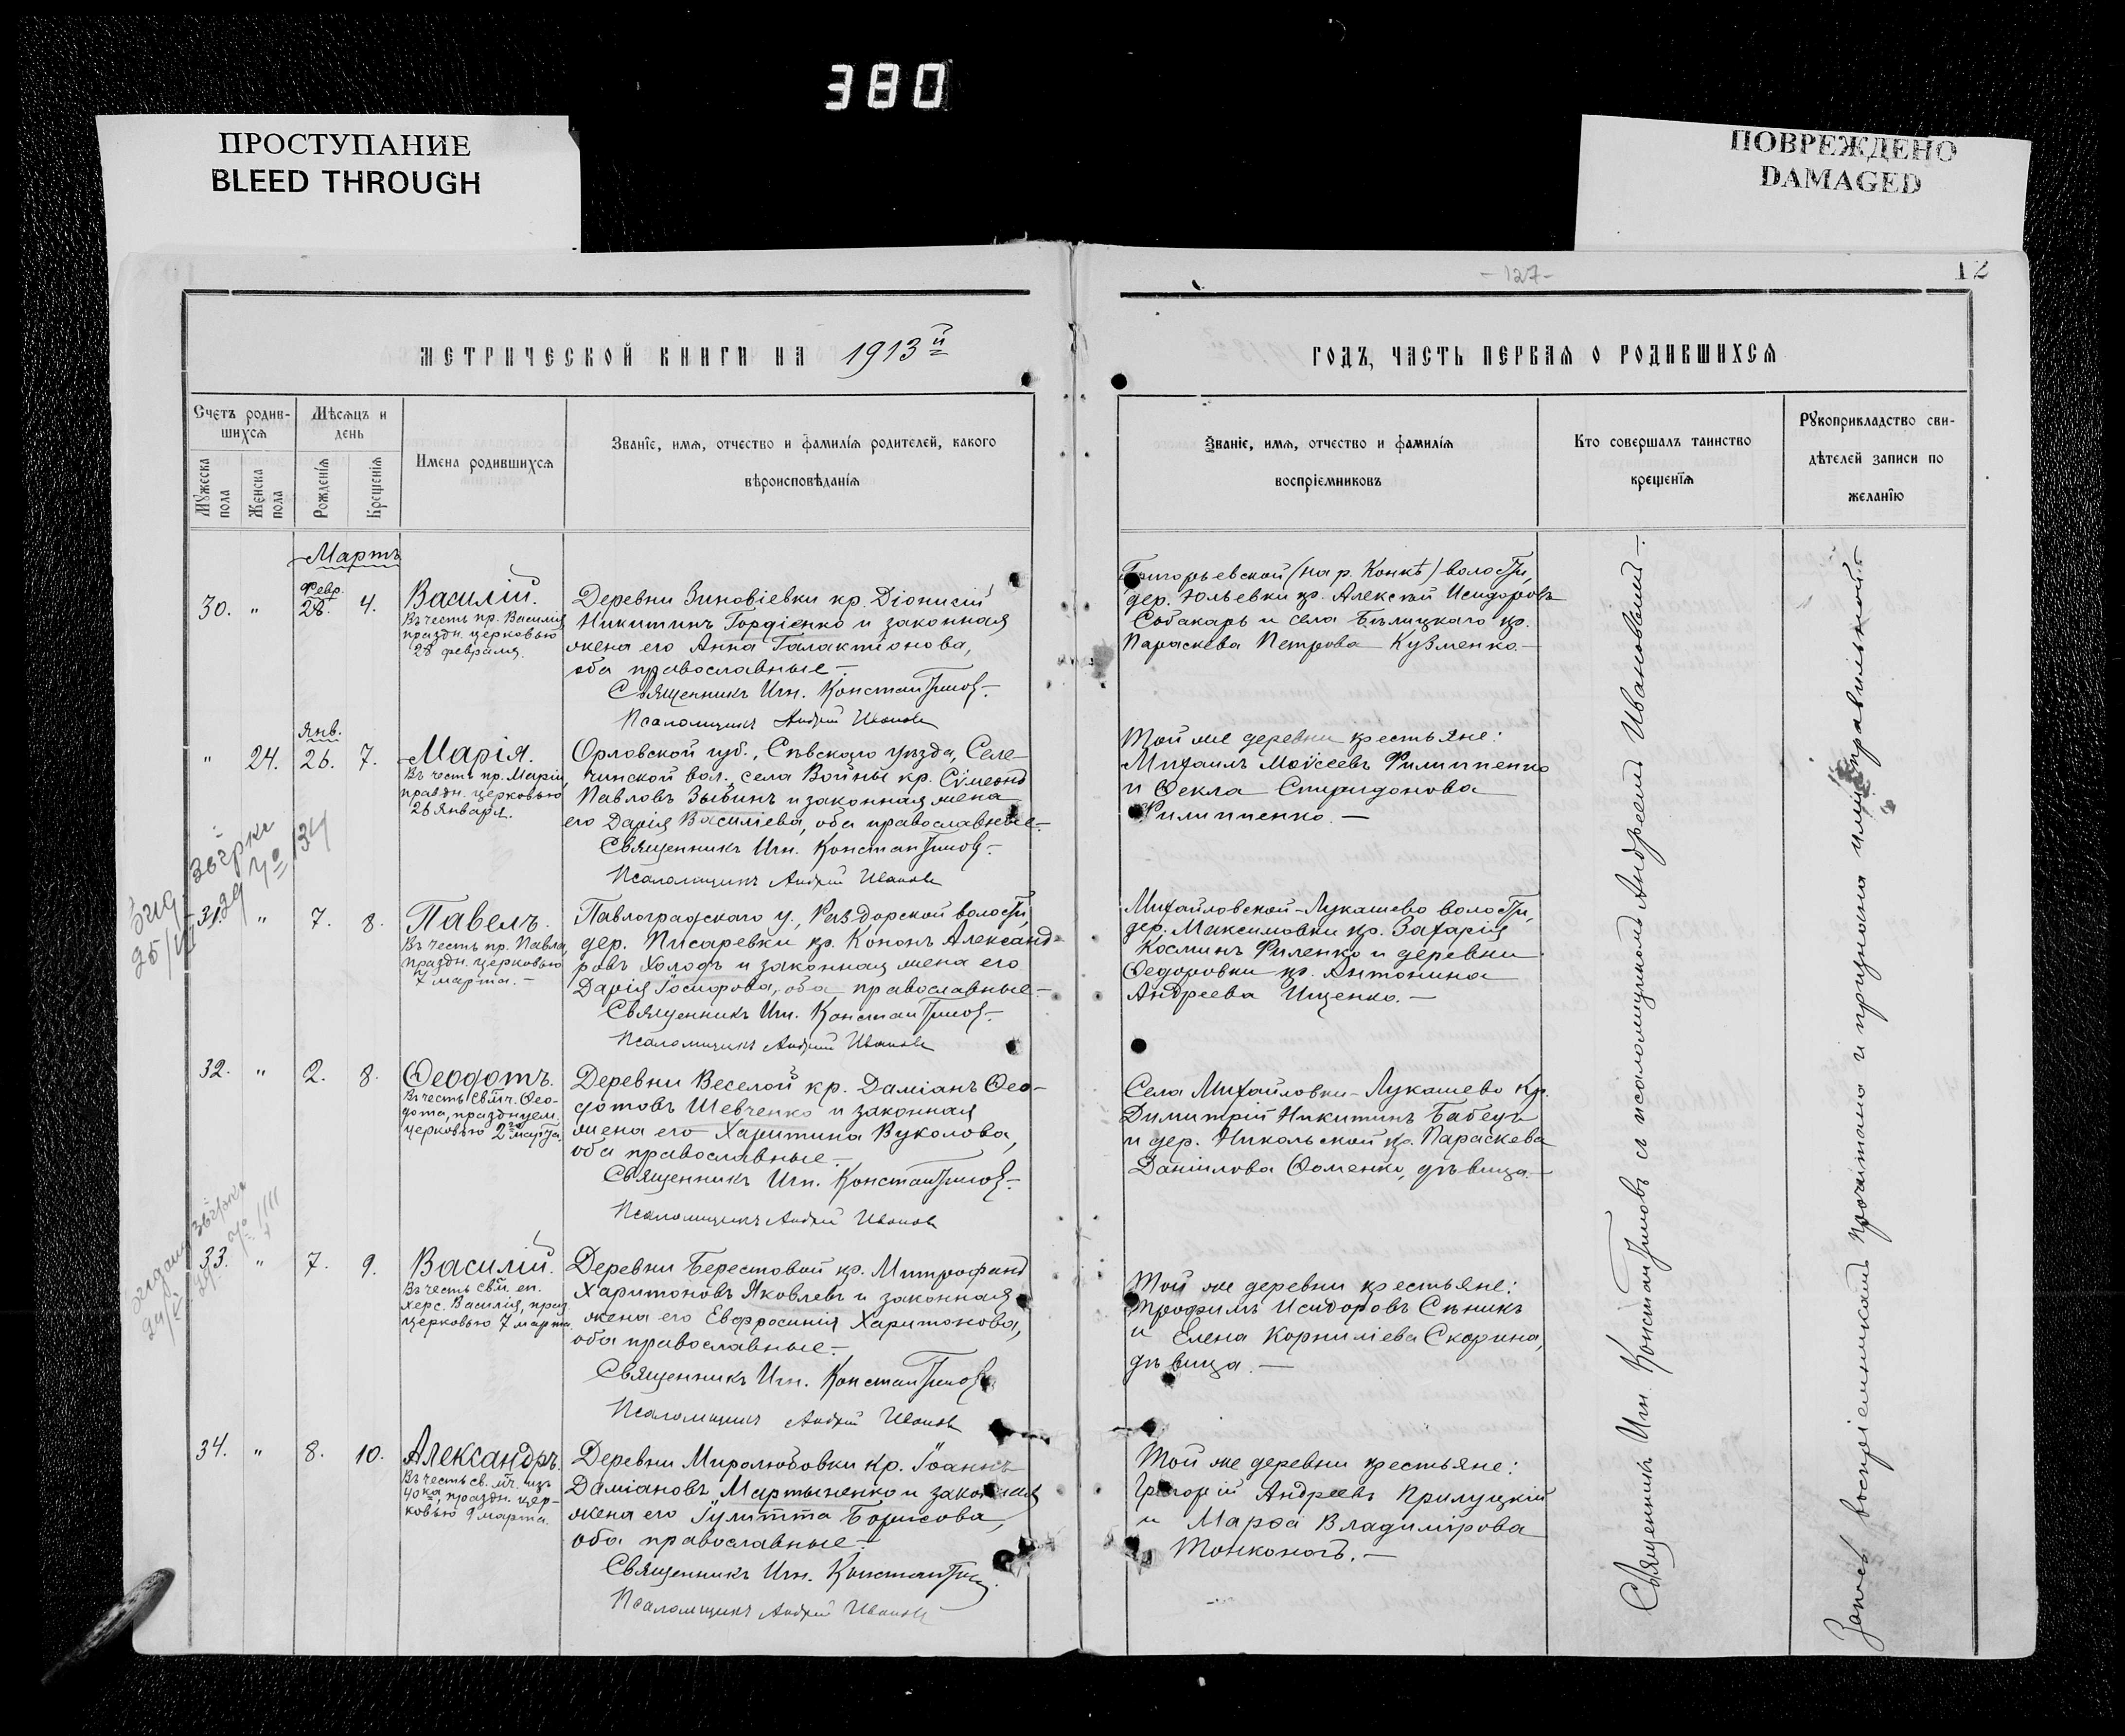 380
ПРОСТУПАНИЕ
BLEED THROUGH
ПОВРЕЖДЕНО
DAMAGED
-127-
12
МЕТРИЧЕСКОЙ КНИГИ НА 1913й
ГОДЪ, ЧАСТЬ ПЕРВАЯ О РОДИВШИХСЯ
Счетъ родив-
шихся
Мѣсяцъ и
день
Мужеска
пола
Женска
пола
Рожденія
Крещенія
Имена родившихся
Званіе, имя, отчество и фамилія родителей, какого
вѣроисповѣданія
Званіе, имя, отчество и фамилія
воспріемниковъ
Кто совершалъ таинство
крещенія
Рукоприкладство сви-
дѣтелей записи по
желанію
Мартъ
30. " Февр. 28. 4.
Василій.
Въ честь пр. Василія
праздн. церковью
28 февраля.
Деревни Зиновіевки кр. Діонисій
Никитинъ Гордіенко и законная
жена его Анна Галактіонова,
оба православные.-
Священникъ Игн. Константиновъ.
Псаломщикъ Андрей Ивановъ
Григорьевской (на р. Конкѣ) волости,
дер. Юльевки кр. Алексѣй Исидоровъ
Собакарь и села Бѣлицкаго кр.
Параскева Петрова Кузменко.-
" 24. Янв. 26. 7.
Марія.
Въ честь пр. Маріи,
праздн. церковью
26 Января.
Орловской губ., Сѣвскаго уѣзда, Селе-
чинской вол., села Войны кр. Сімеонъ
Павловъ Зыбинъ и законная жена
его Дарія Василіева, оба православные.-
Священникъ Игн. Константиновъ.-
Псаломщикъ Андрей Ивановъ
Той же деревни крестьяне:
Михаилъ Моѵсеевъ Филиппенко
и Ѳекла Спиридонова
Филиппенко. —
31. " 7. 8.
Павелъ.
Въ честь пр. Павла,
праздн. церковью
7 марта.-
Павлоградскаго у., Раздорской волости,
дер. Писаревки кр. Кононъ Александ-
ровъ Холодъ и законная жена его
Дарія Іосифова, оба православные.-
Священникъ Игн. Константиновъ.-
Псаломщикъ Андрей Ивановъ
Михайловской-Лукашево волости,
дер. Максимовки кр. Захарія
Косминъ Филенко и деревни
Ѳедоровки кр. Антонина
Андреева Ищенко.—
32. " 2. 8.
Ѳеодотъ.
Въ честь свмч. Ѳео-
дота, празднуем.
церковью 2го марта.
Деревни Веселой кр. Даміанъ Ѳео-
дотовъ Шевченко и законная
жена его Харитина Вуколова,
оба православные.-
Священникъ Игн. Константиновъ.-
Псаломщикъ Андрей Ивановъ
Села Михайловки-Лукашево кр.
Димитрій Никитинъ Бабецъ
и дер. Никольской кр. Параскева
Даніилова Ѳоменко, дѣвица.—
33. " 7. 9.
Василій.
Въ честь свм. еп.
Херс. Василія, праз.
церковью 7 марта.
Деревни Берестовой кр. Митрофанъ
Харитоновъ Яковлевъ и законная
жена его Евфросинія Харитонова,
оба православные.-
Священникъ Игн. Константиновъ
Псаломщикъ Андрей Ивановъ
Той же деревни крестьяне:
Трофимъ Исидоровъ Сѣникъ
и Елена Корниліева Скорина,
дѣвица.—
34. " 8. 10.
Александръ.
Въ честь св. мч. изъ
40ка, праздн. цер-
ковью 9 марта.
Деревни Миролюбовки кр. Іоаннъ
Даміановъ Мартыненко и законная
жена его Іулитта Борисова,
оба православные.-
Священникъ Игн. Константиновъ.
Псаломщикъ Андрей Ивановъ
Той же деревни крестьяне:
Григорій Андреевъ Прилуцкій
и Марѳа Владимірова
Тонконогъ.—
Священникъ Игн. Константиновъ съ псаломщикомъ Андреемъ Ивановымъ.—
Запись воспріемникамъ прочитана и признана ими правильной.-